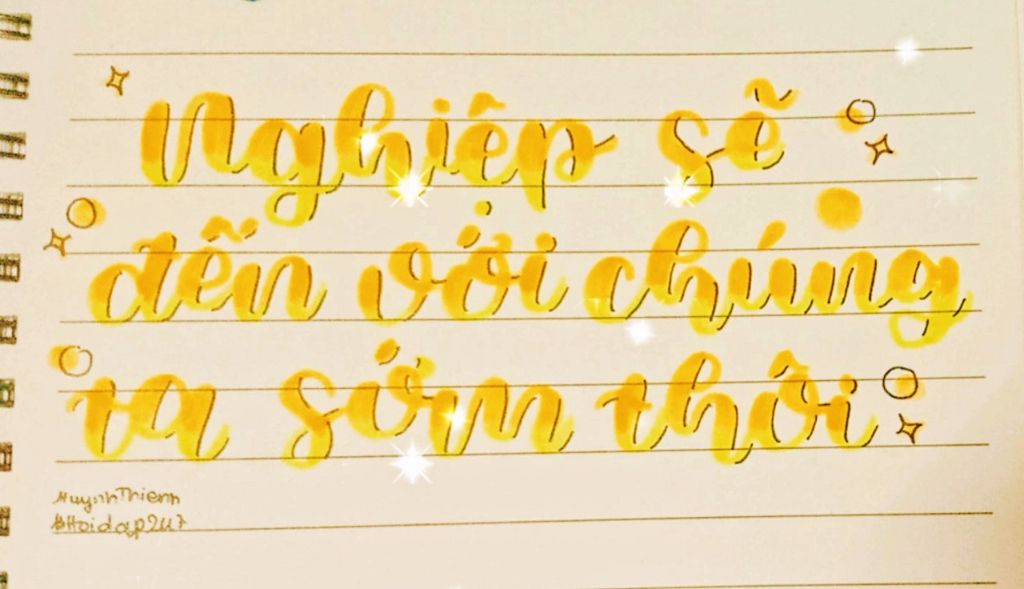 Nghiệp sẽ
đến với chúng
ta sớm thôi
HuynhThienn
#Hoidap247